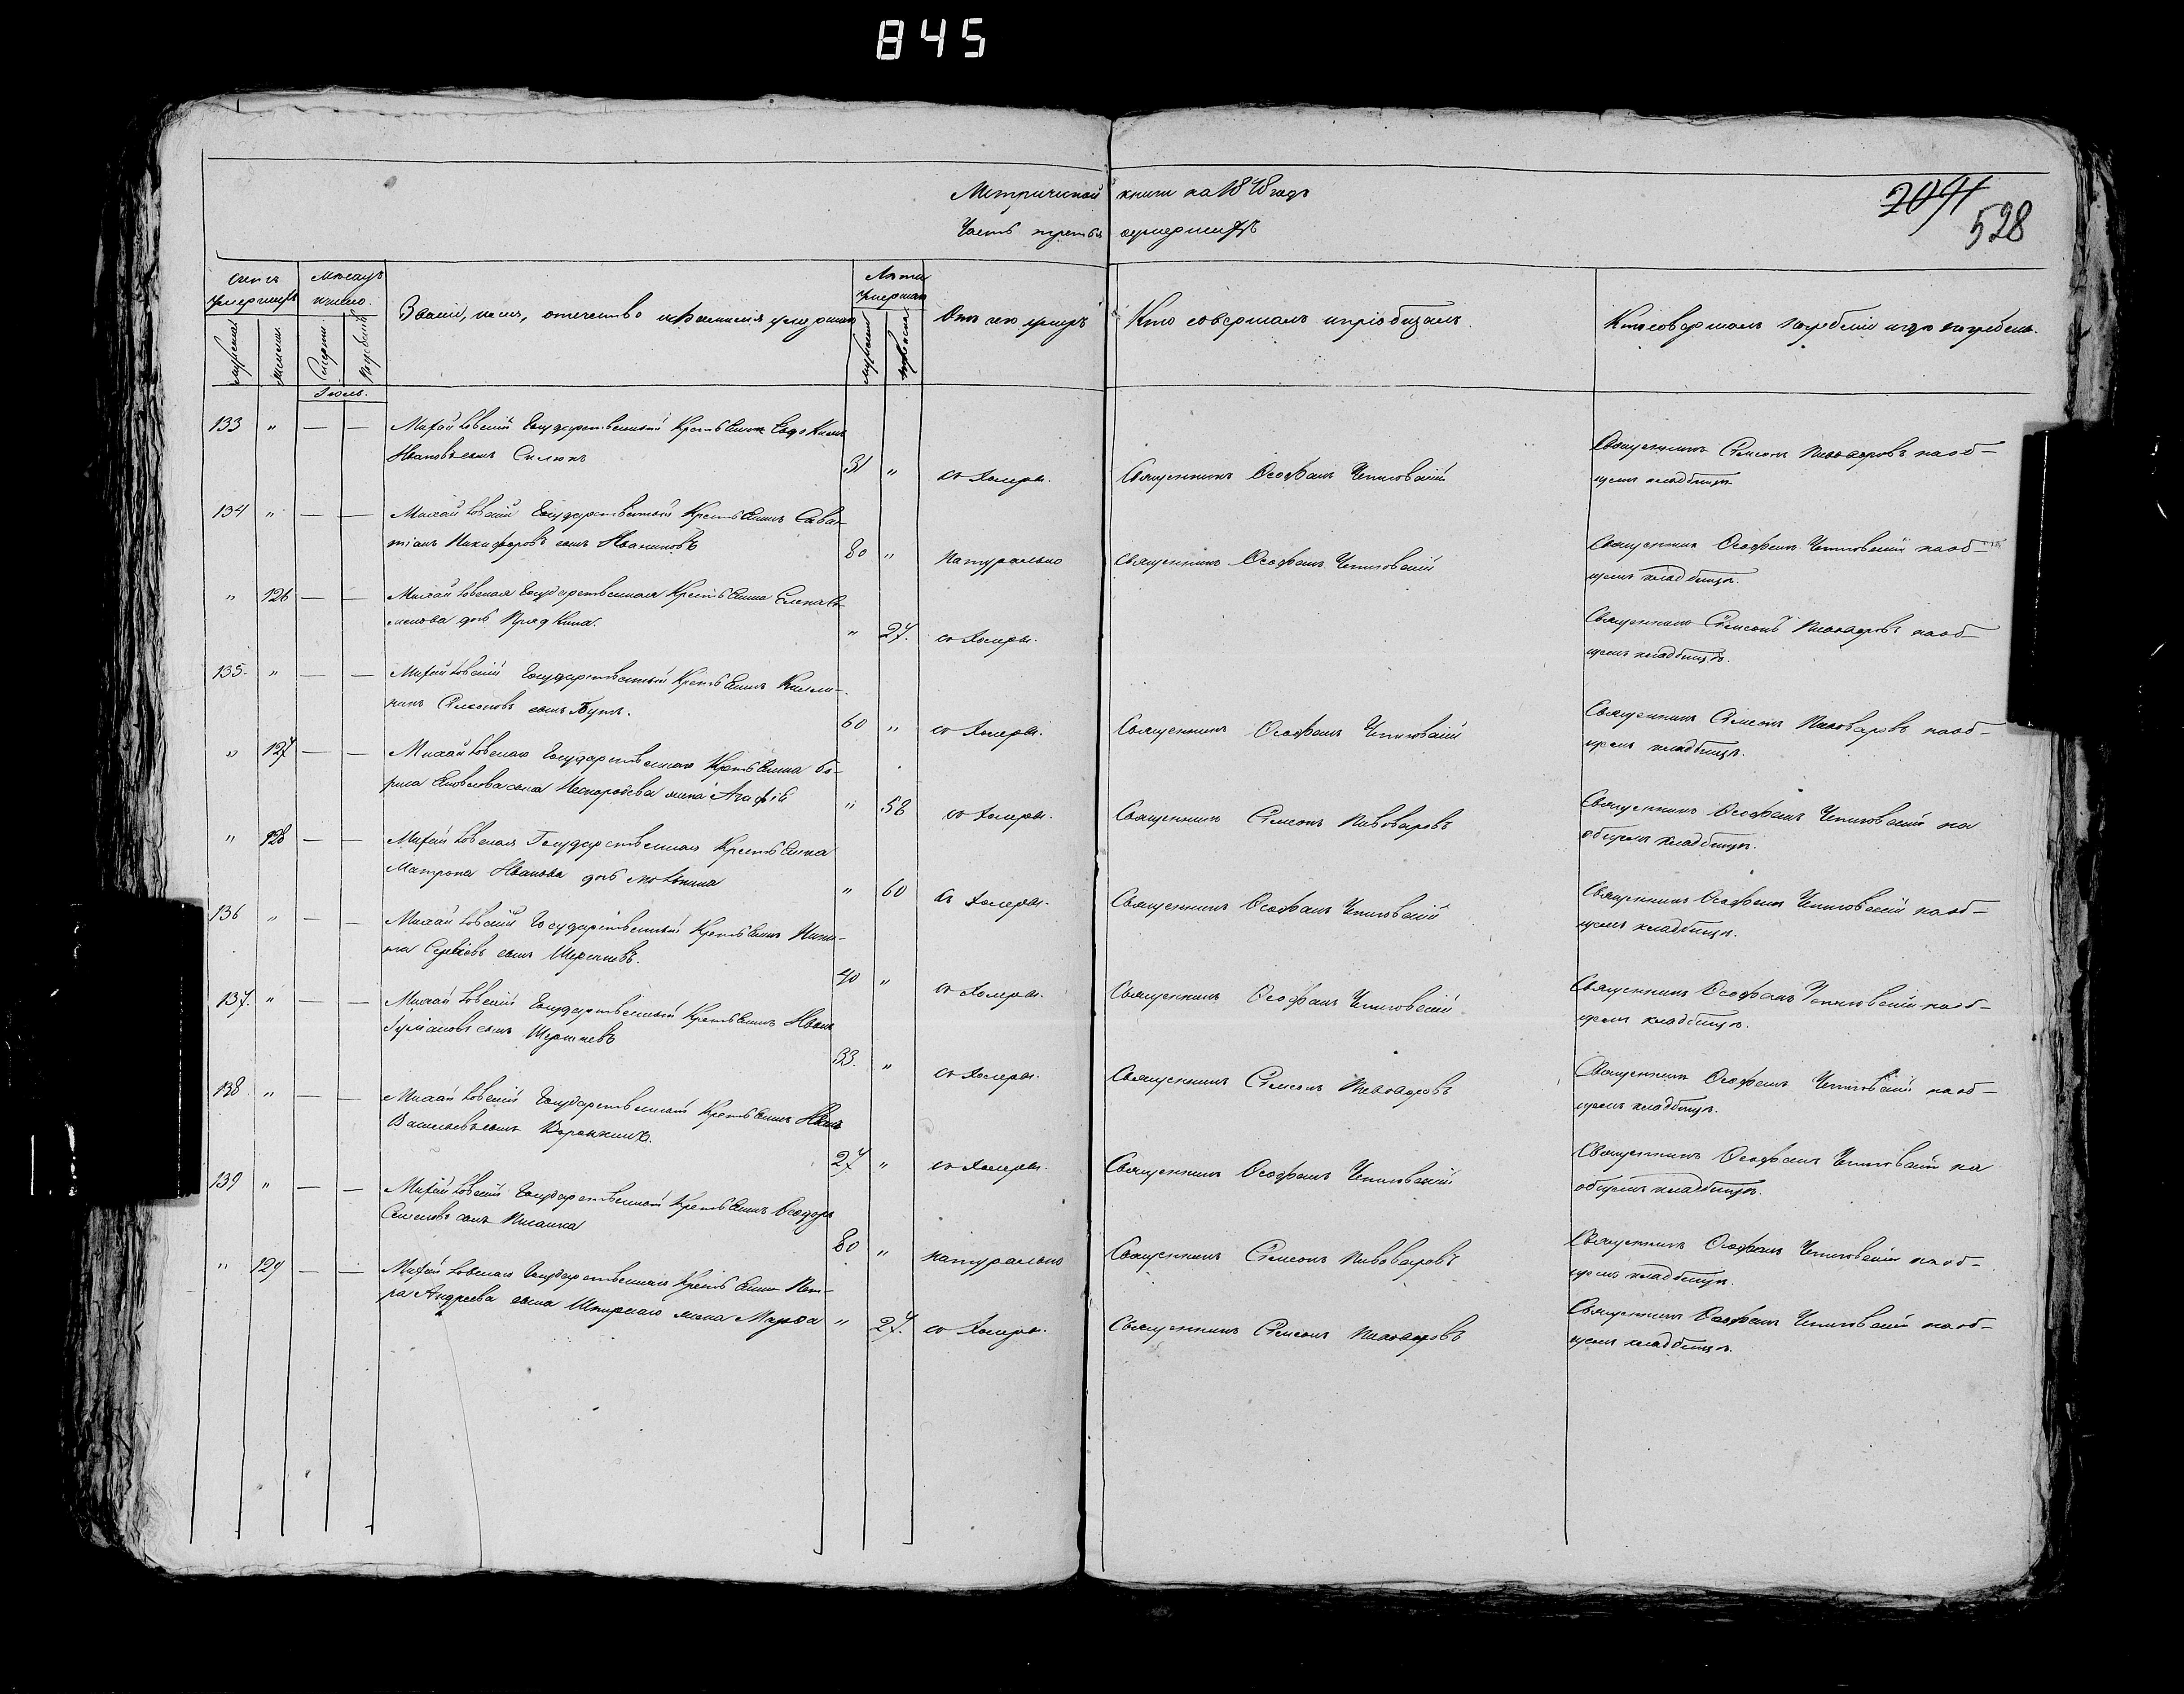 845
Метрической книги на 1848 годъ
Часть третья о умершихъ
2041
528
Счетъ умершихъ
Мѣсяцъ и число.
Званіе, имя, отечество и фамилія умершаго
Лѣта умершаго
Отъ чего умеръ
Кто совершалъ и пріобщалъ.
Кто совершалъ погребеніе и гдѣ погребены.
мужеска
женска
Смерти
Погребенія
мужеска
женска
Іюль.
133 " — — Михайловскій Государственный Крестьянинъ Евдокимъ
Ивановъ сынъ
31 " отъ Холеры. Священникъ Ѳеофанъ Чепиговскій
Священникъ Сѵмеонъ Пивоваровъ на об-
щемъ кладбищѣ
134 " — — Михайловскій Государственный Крестьянинъ Сава-
тіанъ Никифоровъ сынъ
80 " Натурально Священникъ Ѳеофанъ Чепиговскій
Священникъ Ѳеофанъ Чепиговскій на об-
щемъ кладбищѣ.
" 126 — — Михайловская Государственная Крестьянка Елена
дочь
" 27. отъ Холеры.
Священникъ Сѵмеонъ Пивоваровъ на об-
щемъ кладбищѣ.
135. " — — Михайловскій Государственный Крестьянинъ
Сѵмеоновъ сынъ Бутъ.
60 " отъ Холеры. Священникъ Ѳеофанъ Чепиговскій
Священникъ Сѵмеонъ Пивоваровъ на об-
щемъ кладбищѣ.
" 127 — — Михайловскаго Государственнаго Крестьянина Бо-
риса Яковлева сына жена Агафія
" 58 отъ Холеры. Священникъ Сѵмеонъ Пивоваровъ
Священникъ Ѳеофанъ Чепиговскій на
общемъ кладбищѣ.
" 128 — — Михайловская Государственная Крестьянка
Матрона Иванова дочь
" 60 отъ Холеры. Священникъ Ѳеофанъ Чепиговскій
Священникъ Ѳеофанъ Чепиговскій на об-
щемъ кладбищѣ.
136 " — — Михайловскій Государственный Крестьянинъ Ники-
та Сергѣевъ сынъ
40 " отъ Холеры. Священникъ Ѳеофанъ Чепиговскій
Священникъ Ѳеофанъ Чепиговскій на об-
щемъ кладбищѣ.
137. " — — Михайловскій Государственный Крестьянинъ Иванъ
сынъ
33. " отъ Холеры. Священникъ Сѵмеонъ Пивоваровъ
Священникъ Ѳеофанъ Чепиговскій на об-
щемъ кладбищѣ.
138 " — — Михайловскій Государственный Крестьянинъ Иванъ
Васильевъ сынъ
27 " отъ Холеры. Священникъ Ѳеофанъ Чепиговскій
Священникъ Ѳеофанъ Чепиговскій на
общемъ кладбищѣ.
139 " — — Михайловскій Государственный Крестьянинъ Ѳеодоръ
Семеновъ сынъ
80 " натурально Священникъ Сѵмеонъ Пивоваровъ
Священникъ Ѳеофанъ Чепиговскій на об-
щемъ кладбищѣ.
" 129 — — Михайловскаго Государственнаго Крестьянина Пет-
ра Андреева сына жена Марѳа
" 27. отъ Холеры. Священникъ Сѵмеонъ Пивоваровъ
Священникъ Ѳеофанъ Чепиговскій на об-
щемъ кладбищѣ.